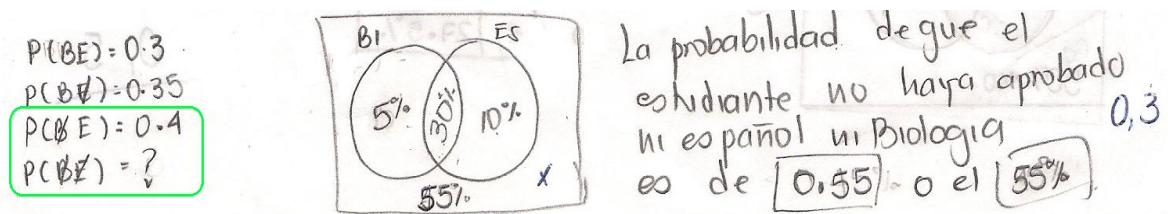 P(BE)=0.3
P(BE̸)=0.35
P(B̸E)=0.4
P(B̸E̸)=?
BI
ES
5%
30%
10%
55%
x
La probabilidad de que el
estudiante no haya aprobado
ni español ni Biologia
es de 0.55 o el 55%
0,3